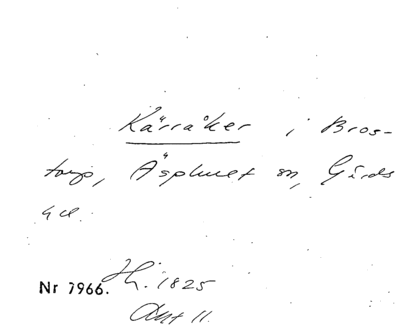 Kärråker i Bros-
torp, Äsphult sn, Gärds
hd.
Nr 7966. Hi. 1825
Akt 11.